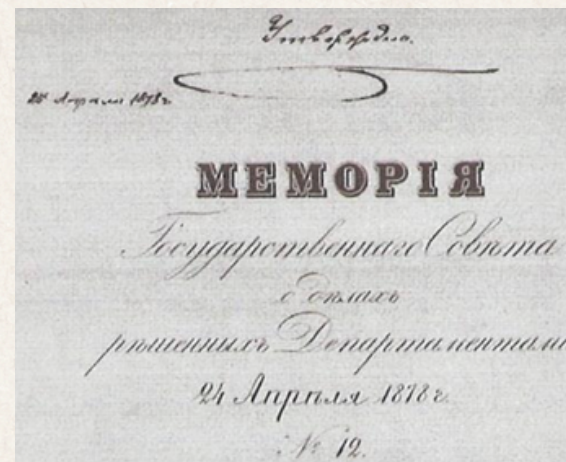 28 Апреля 1878 г.
МЕМОРІЯ
Государственнаго Совѣта
о дѣлахъ
рѣшенныхъ Департаментами
24 Апрѣля 1878 г.
№ 12.